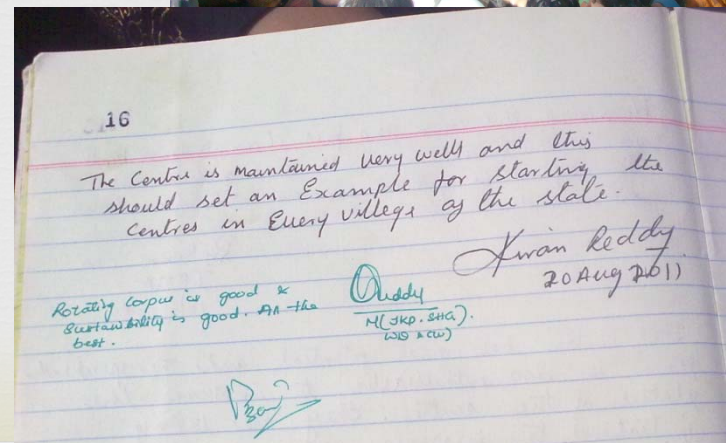 16
The Centre is maintained very well and this
should set an Example for starting the
Centres in Every village of the state.
Kiran Reddy
20 Aug 2011
Rotating corpus is good &
Sustainability is good. All the
best.
Reddy
M(IKP. SHG).